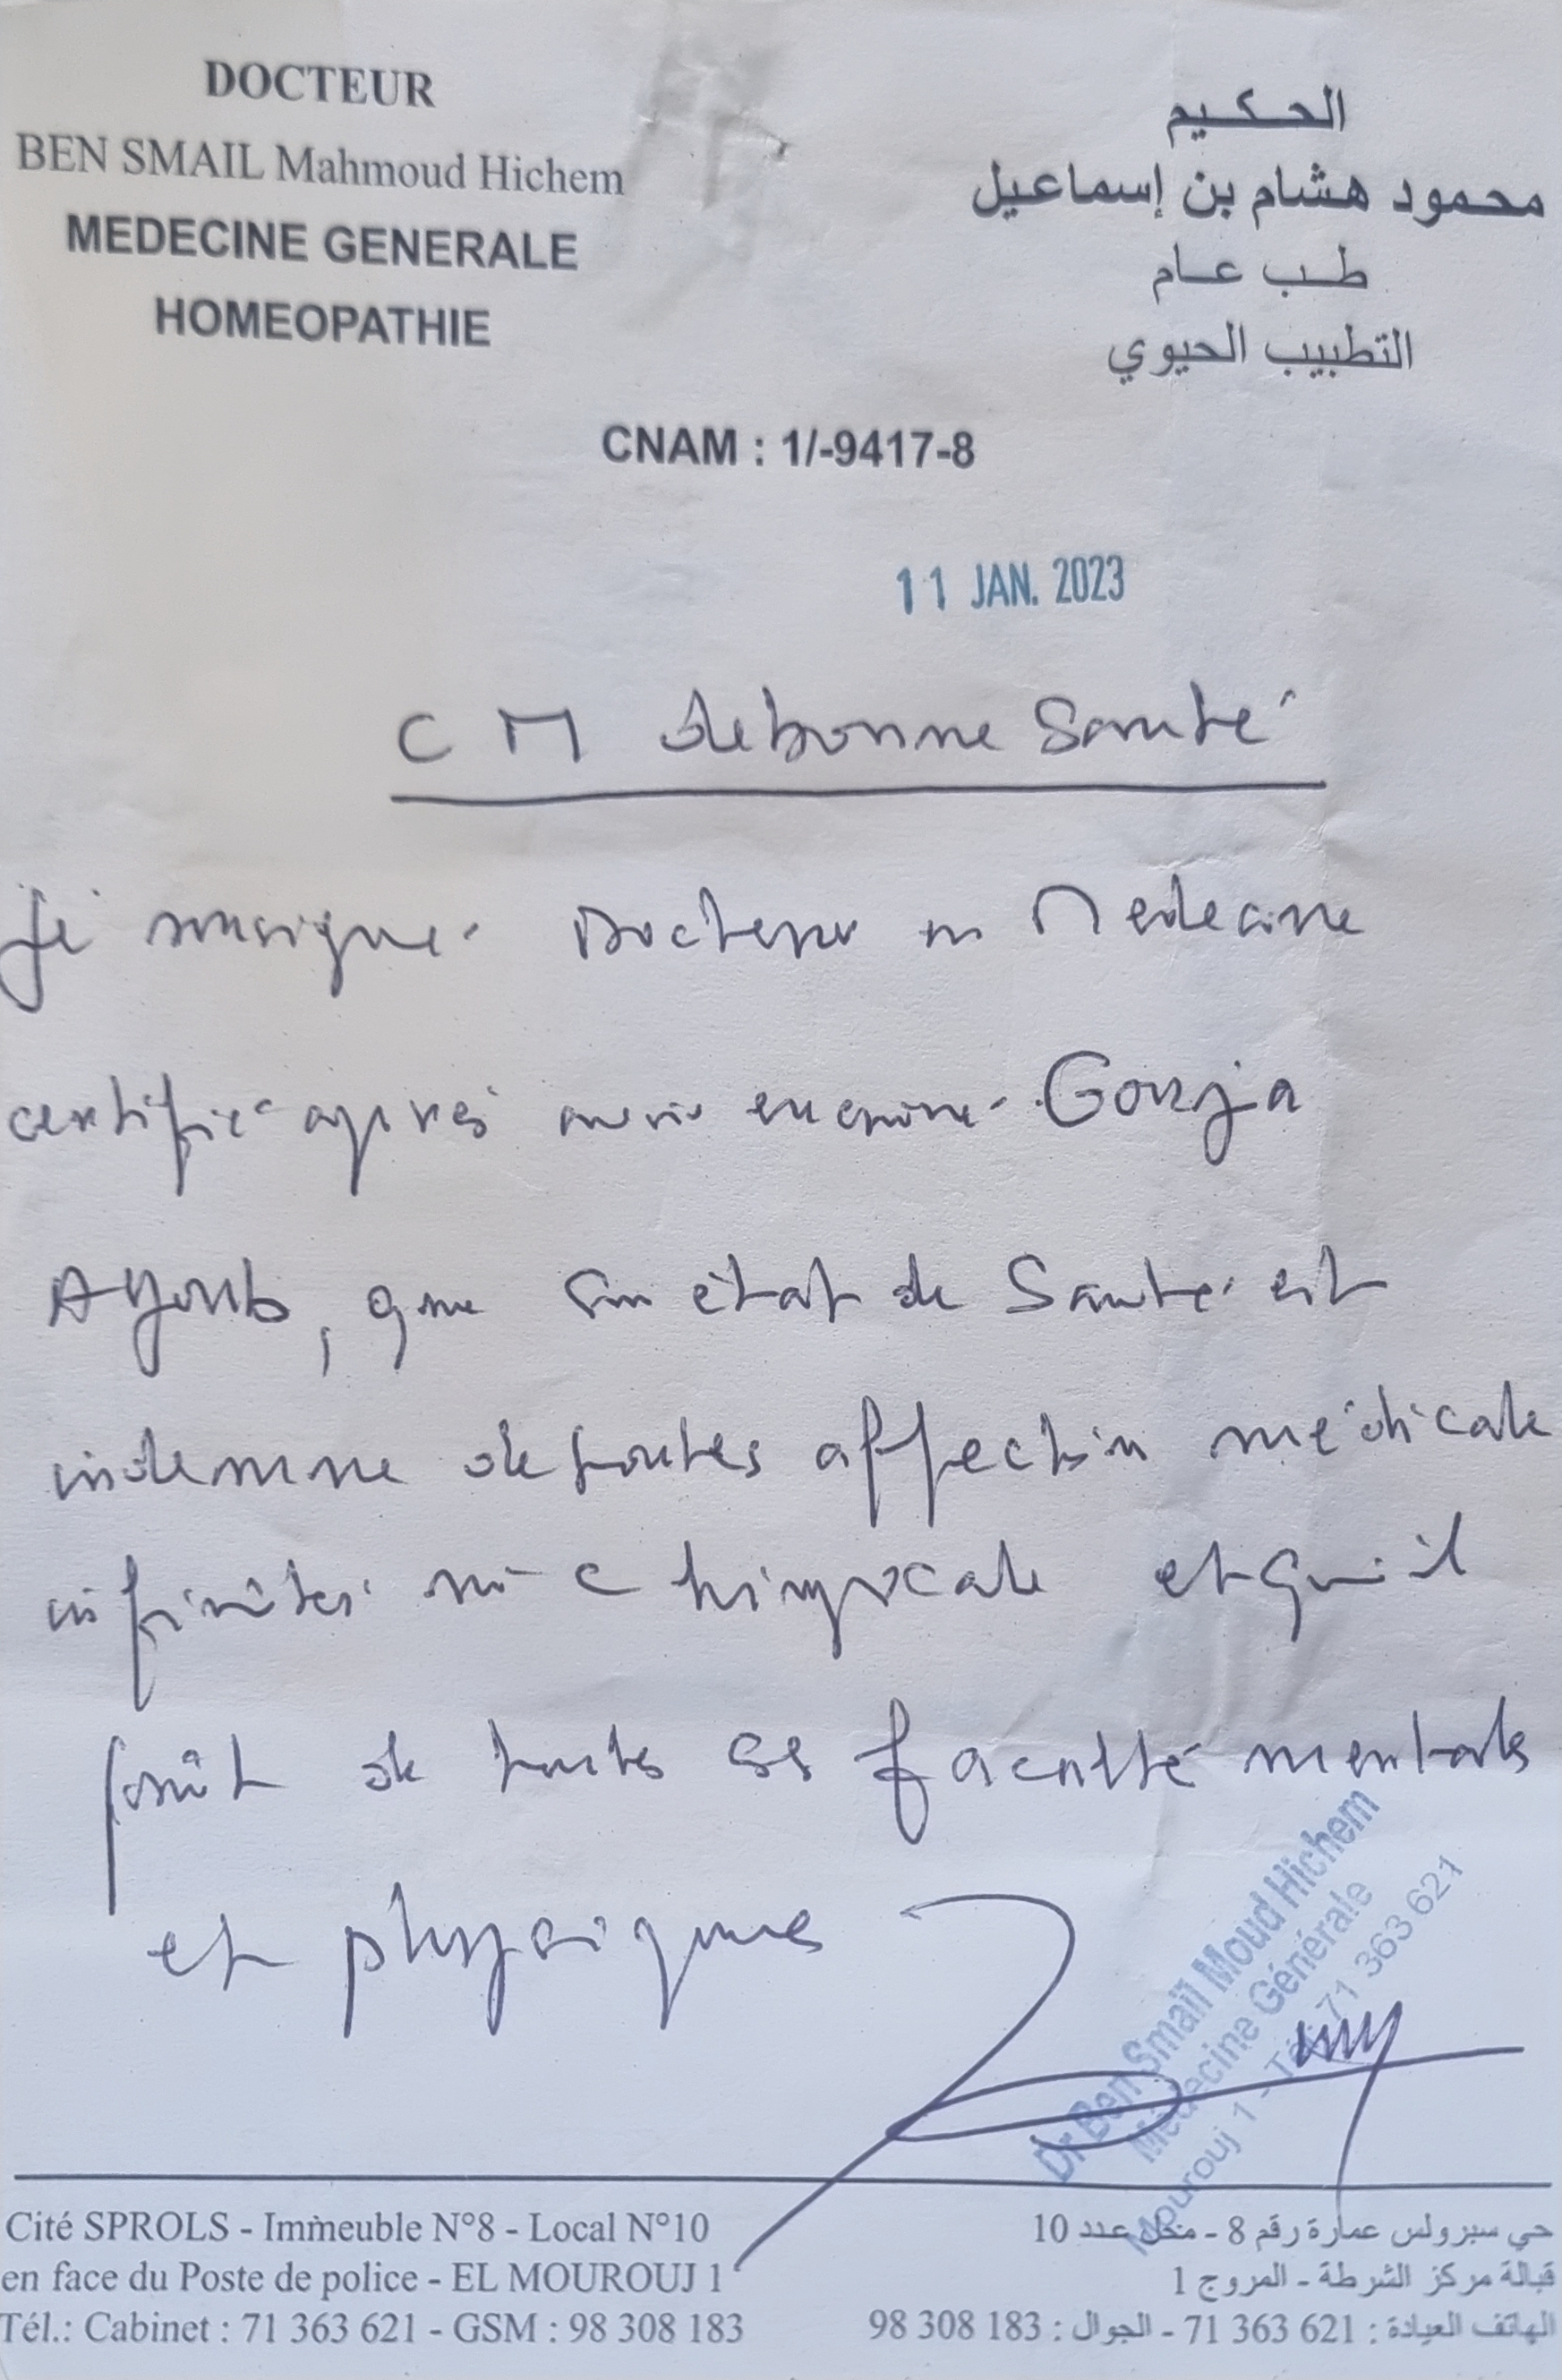 DOCTEUR
BEN SMAIL Mahmoud Hichem
MEDECINE GENERALE
HOMEOPATHIE
الحكيم
محمود هشام بن إسماعيل
طب عام
التطبيب الحيوي
CNAM : 1/-9417-8
11 JAN. 2023
CM de bonne Santé
Je sousigné Docteur en Medecine
certifie après avoir examiné Gouja
Ayoub, que son état de Santé est
indemne de toutes affection médicale
ni chirugicale et qu'il
jouit de toutes ses faculté mentales
et physiques
Dr Ben Smaïl Moud Hichem
Médecine Générale
Mourouj 1 - Tél: 71 363 621
Cité SPROLS - Immeuble N°8 - Local N°10
en face du Poste de police - EL MOUROUJ 1
Tél.: Cabinet : 71 363 621 - GSM : 98 308 183
حي سبرولس عمارة رقم 8 - محل عدد 10
قبالة مركز الشرطة - المروج 1
الهاتف العيادة : 71 363 621 - الجوال : 98 308 183